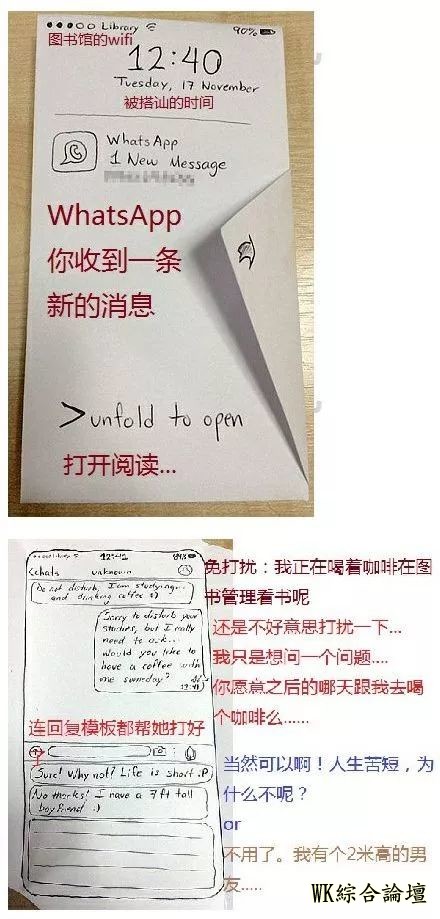 ●●●○○ Library
90%
图书馆的wifi
12:40
Tuesday, 17 November
被搭讪的时间
WhatsApp
1 New Message
WhatsApp
你收到一条
新的消息
>unfold to open
打开阅读...
12:41
89%
<chats
unknown
Do not disturb, I am studying...
and drinking coffee :)
Sorry to disturb your
studies, but I really
need to ask...
would you like to
have a coffee with
me someday?
12:41
免打扰：我正在喝着咖啡在图
书管理看书呢
还是不好意思打扰一下...
我只是想问一个问题....
你愿意之后的哪天跟我去喝
个咖啡么......
连回复模板都帮她打好了
Sure! Why not? Life is short :P
No thanks! I have a 7ft tall
boyfriend :)
当然可以啊！人生苦短，为
什么不呢？
or
不用了。我有个2米高的男
友.....
WK綜合論壇